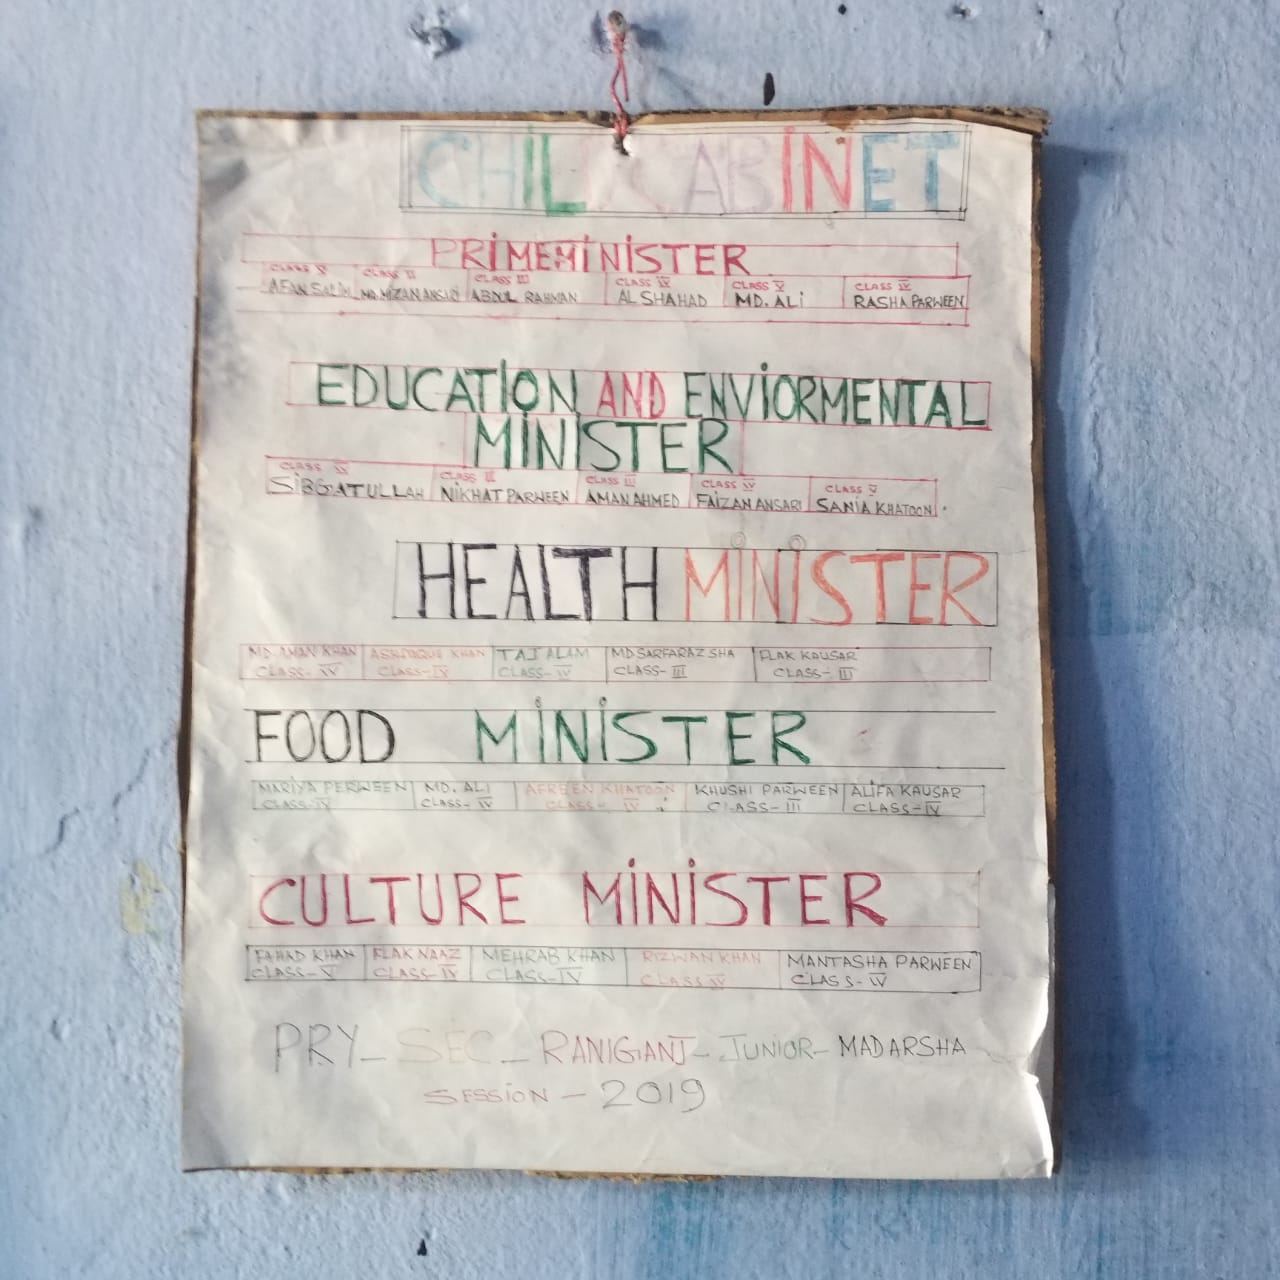 CHILD CABINET
PRIMEMINISTER
CLASS V CLASS II CLASS III CLASS IV CLASS V CLASS IV
AFAN SALIM MD.MIZAN ANSARI ABDUL RAHMAN AL SHAHAD MD. ALI RASHA PARWEEN
EDUCATION AND ENVIORMENTAL
MINISTER
CLASS IV CLASS III CLASS III CLASS IV CLASS V
SIBGATULLAH NIKHAT PARWEEN AMAN AHMED FAIZAN ANSARI SANIA KHATOON.
HEALTH MINISTER
MD. AMAN KHAN ASHFAQUE KHAN TAJ ALAM MD SARFARAZ SHA FLAK KAUSAR
CLASS- IV CLASS-IV CLASS- IV CLASS- III CLASS- III
FOOD MINISTER
MARIYA PERWEEN MD. ALI AFREEN KHATOON KHUSHI PARWEEN ALIFA KAUSAR
CLASS-IV CLASS- IV CLASS- IV CLASS-III CLASS-IV
CULTURE MINISTER
FAHAD KHAN FLAK NAAZ MEHRAB KHAN RIZWAN KHAN MANTASHA PARWEEN
CLASS-V CLASS-IV CLASS-IV CLASS IV CLASS- IV
PRY- SEC - RANIGANJ- JUNIOR- MADARSHA
SESSION - 2019